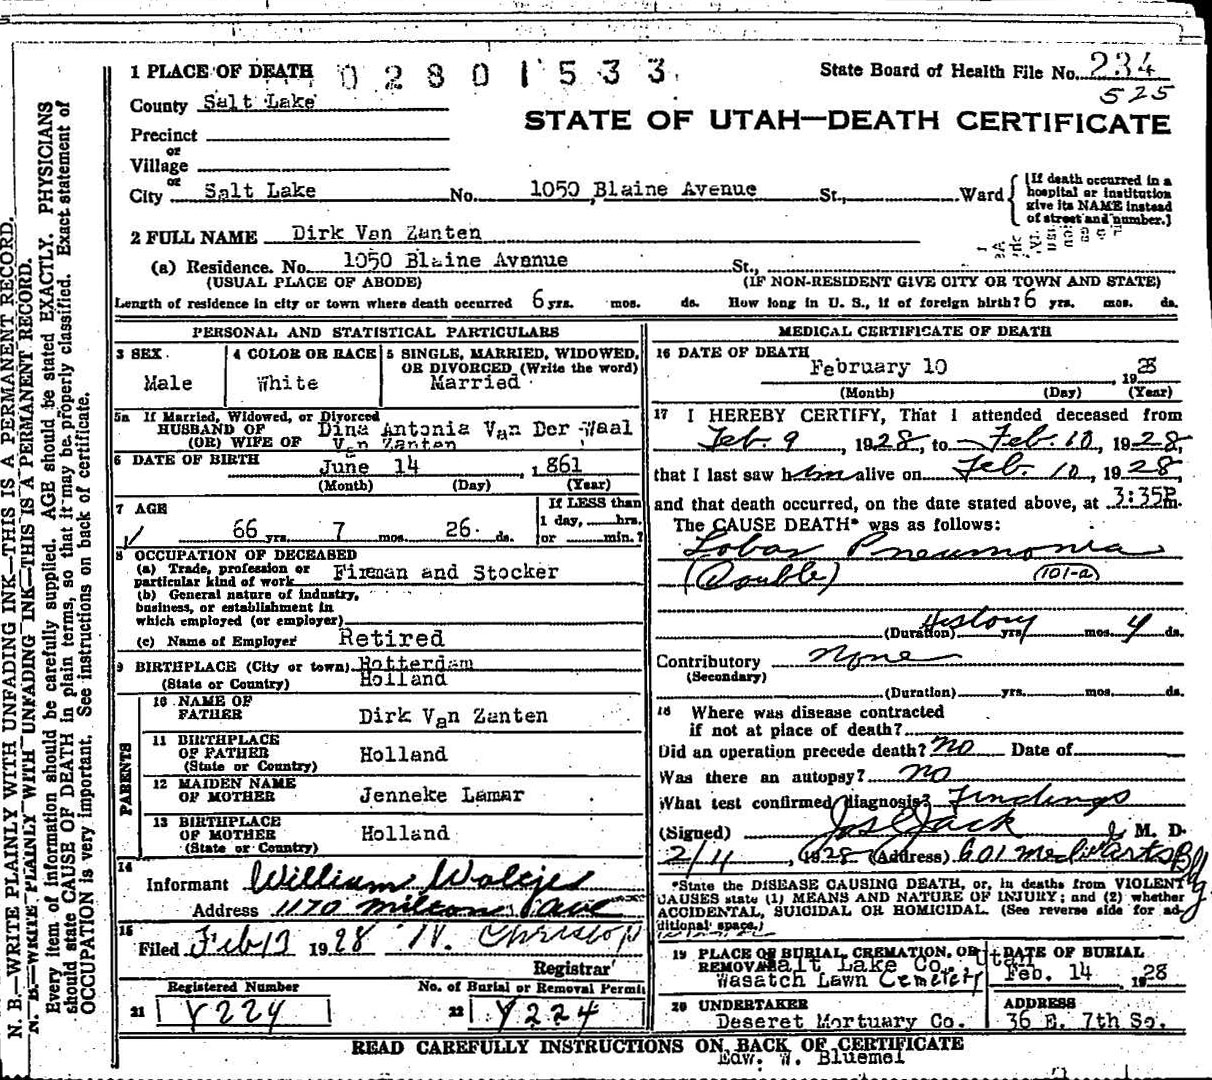 1 PLACE OF DEATH 02801533 State Board of Health File No. 234
525
County Salt Lake
STATE OF UTAH—DEATH CERTIFICATE
Precinct
or
Village
or
City Salt Lake No. 1050 Blaine Avenue St., Ward
[If death occurred in a hospital or institution give its NAME instead of street and number.]
2 FULL NAME Dirk Van Zanten
(a) Residence. No. 1050 Blaine Avenue St.,
(USUAL PLACE OF ABODE) (IF NON-RESIDENT GIVE CITY OR TOWN AND STATE)
Length of residence in city or town where death occurred 6 yrs. mos. ds. How long in U. S., if of foreign birth? 6 yrs. mos. ds.
PERSONAL AND STATISTICAL PARTICULARS
3 SEX
Male
4 COLOR OR RACE
White
5 SINGLE, MARRIED, WIDOWED,
OR DIVORCED (Write the word)
Married
5a If Married, Widowed, or Divorced
HUSBAND OF Dina Antonia Van Der Waal
(OR) WIFE OF Van Zanten
6 DATE OF BIRTH June 14, 1861
(Month) (Day) (Year)
7 AGE
66 yrs. 7 mos. 26 ds.
If LESS than
1 day, hrs.
or min.?
8 OCCUPATION OF DECEASED
(a) Trade, profession or
particular kind of work Fireman and Stocker
(b) General nature of industry,
business, or establishment in
which employed (or employer)
(c) Name of Employer Retired
9 BIRTHPLACE (City or town) Rotterdam
(State or Country) Holland
PARENTS
10 NAME OF
FATHER Dirk Van Zanten
11 BIRTHPLACE
OF FATHER Holland
(State or Country)
12 MAIDEN NAME
OF MOTHER Jenneke Lamar
13 BIRTHPLACE
OF MOTHER Holland
(State or Country)
14
Informant William Woltjes
Address 1170 Milton Ave
15
Filed Feb 13 1928 N. Christop
Registrar
Registered Number No. of Burial or Removal Permit
21 Y224 22 Y224
MEDICAL CERTIFICATE OF DEATH
16 DATE OF DEATH
February 10 1928
(Month) (Day) (Year)
17 I HEREBY CERTIFY, That I attended deceased from
Feb. 9, 1928, to Feb. 10, 1928,
that I last saw him alive on Feb. 10, 1928,
and that death occurred, on the date stated above, at 3:35P m.
The CAUSE DEATH* was as follows:
Lobar Pneumonia
(Double) (101-a)
History
(Duration) yrs. mos. 4 ds.
Contributory None
(Secondary)
(Duration) yrs. mos. ds.
18 Where was disease contracted
if not at place of death?
Did an operation precede death? No Date of
Was there an autopsy? No
What test confirmed diagnosis? Findings
(Signed) Jos E Jack M. D.
2/11, 1928 (Address) 601 Med Arts Bldg
*State the DISEASE CAUSING DEATH, or, in deaths from VIOLENT
CAUSES state (1) MEANS AND NATURE OF INJURY; and (2) whether
ACCIDENTAL, SUICIDAL OR HOMICIDAL. (See reverse side for ad-
ditional space.)
19 PLACE OF BURIAL CREMATION, OR
REMOVAL Salt Lake Co. Utah
Wasatch Lawn Cemetery
DATE OF BURIAL
Feb. 14 1928
20 UNDERTAKER
Deseret Mortuary Co.
ADDRESS
36 E. 7th So.
READ CAREFULLY INSTRUCTIONS ON BACK OF CERTIFICATE
Edw. W. Bluemel
N. B.—WRITE PLAINLY WITH UNFADING INK—THIS IS A PERMANENT RECORD.
N. B.—WRITE PLAINLY WITH UNFADING INK—THIS IS A PERMANENT RECORD.
Every item of information should be carefully supplied. AGE should be stated EXACTLY. PHYSICIANS
should state CAUSE OF DEATH in plain terms, so that it may be properly classified. Exact statement of
OCCUPATION is very important. See instructions on back of certificate.